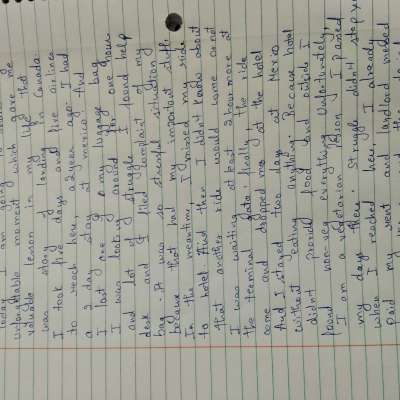 today I am going to
unforgettable moment which gave me
valuable lesson in my life that
was story of landing in Canada.
I took five days and five airlines
to reach here, a year ago. I had
a 2 day stay at mexico And
I lost one of my luggage bag
I was looking around for one hour
and lot of struggle I found help
desk and I filed complaint of my
bag. It was so stressful situation
because that had my important stuff
In the meantime, I missed my ride
to hotel And then I didn't know about
that another ride would come or not
I was waiting at least 2 hour more at
the terminal gate. finally, the ride
came and dropped me at the hotel
And I stayed two days at Mexico
without eating anything. Because hotel
didn't provide food and outside I
found nonveg everything Unfortunately,
I am a vegetarian Person. I passed
my days there. Struggle didn't stop
when I reached here, I already
paid my rent and landlord